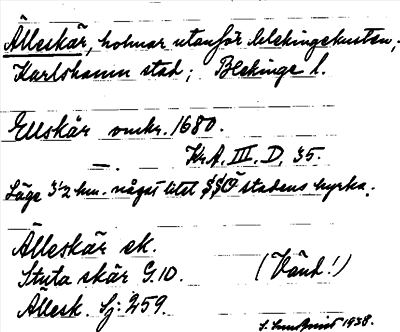 Älleskär, holmar utanför blekingekusten;
Karlshamn stad; Blekinge l.
Ellskär omkr. 1680.
— . Kr.A. III. D, 35.
Läge 3½ km. något litet SSO stadens kyrka.
Älleskär ek.
Stuta skär G.10. (Vänd!)
Ällesk. Sj. 259.
S. 1938.